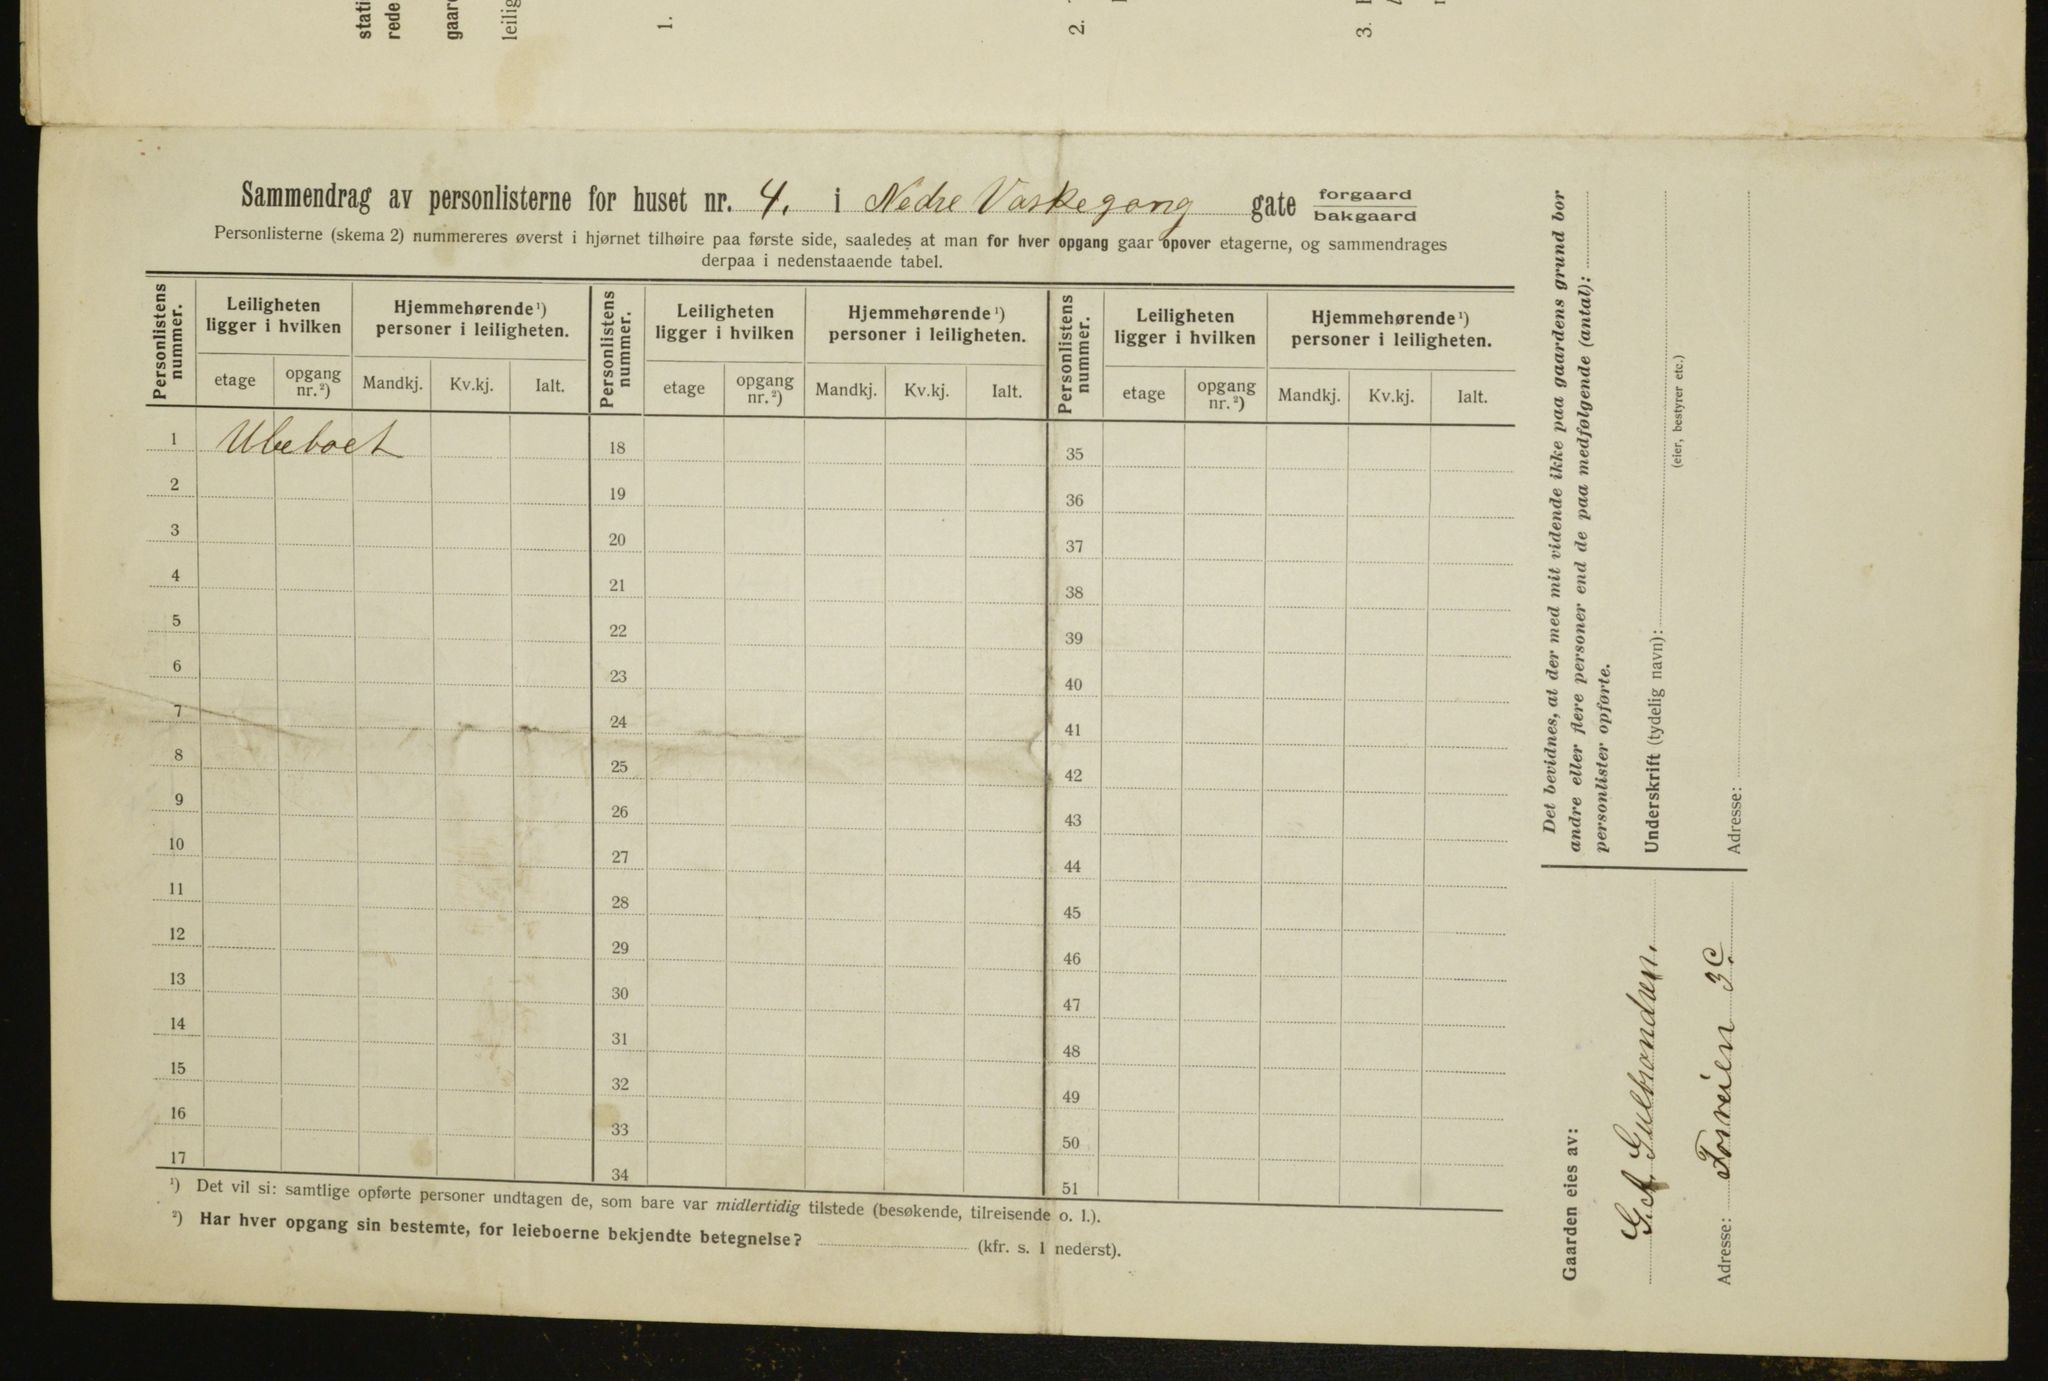 stati
rede
gaard
leilig
1.
2.
3.
Sammendrag av personlisterne for huset nr. 4. i Nedre Vaskegang gate forgaard
bakgaard
Personlisterne (skema 2) nummereres øverst i hjørnet tilhøire paa første side, saaledes at man for hver opgang gaar opover etagerne, og sammendrages
derpaa i nedenstaaende tabel.
Personlistens nummer. Leiligheten ligger i hvilken Hjemmehørende ¹) personer i leiligheten. Personlistens nummer. Leiligheten ligger i hvilken Hjemmehørende ¹) personer i leiligheten. Personlistens nummer. Leiligheten ligger i hvilken Hjemmehørende ¹) personer i leiligheten.
etage opgang nr. ²) Mandkj. Kv.kj. Ialt. etage opgang nr. ²) Mandkj. Kv.kj. Ialt. etage opgang nr. ²) Mandkj. Kv.kj. Ialt.
1 Ubeboet 18 35
2 19 36
3 20 37
4 21 38
5 22 39
6 23 40
7 24 41
8 25 42
9 26 43
10 27 44
11 28 45
12 29 46
13 30 47
14 31 48
15 32 49
16 33 50
17 34 51
¹) Det vil si: samtlige opførte personer undtagen de, som bare var midlertidig tilstede (besøkende, tilreisende o. l.).
²) Har hver opgang sin bestemte, for leieboerne bekjendte betegnelse? (kfr. s. 1 nederst).
Det bevidnes, at der med mit vidende ikke paa gaardens grund bor
andre eller flere personer end de paa medfølgende (antal):
personlister opførte.
Underskrift (tydelig navn):
(eier, bestyrer etc.)
Adresse:
Gaarden eies av:
G. A Gulbrandsen.
Adresse: Fosveien 3C.